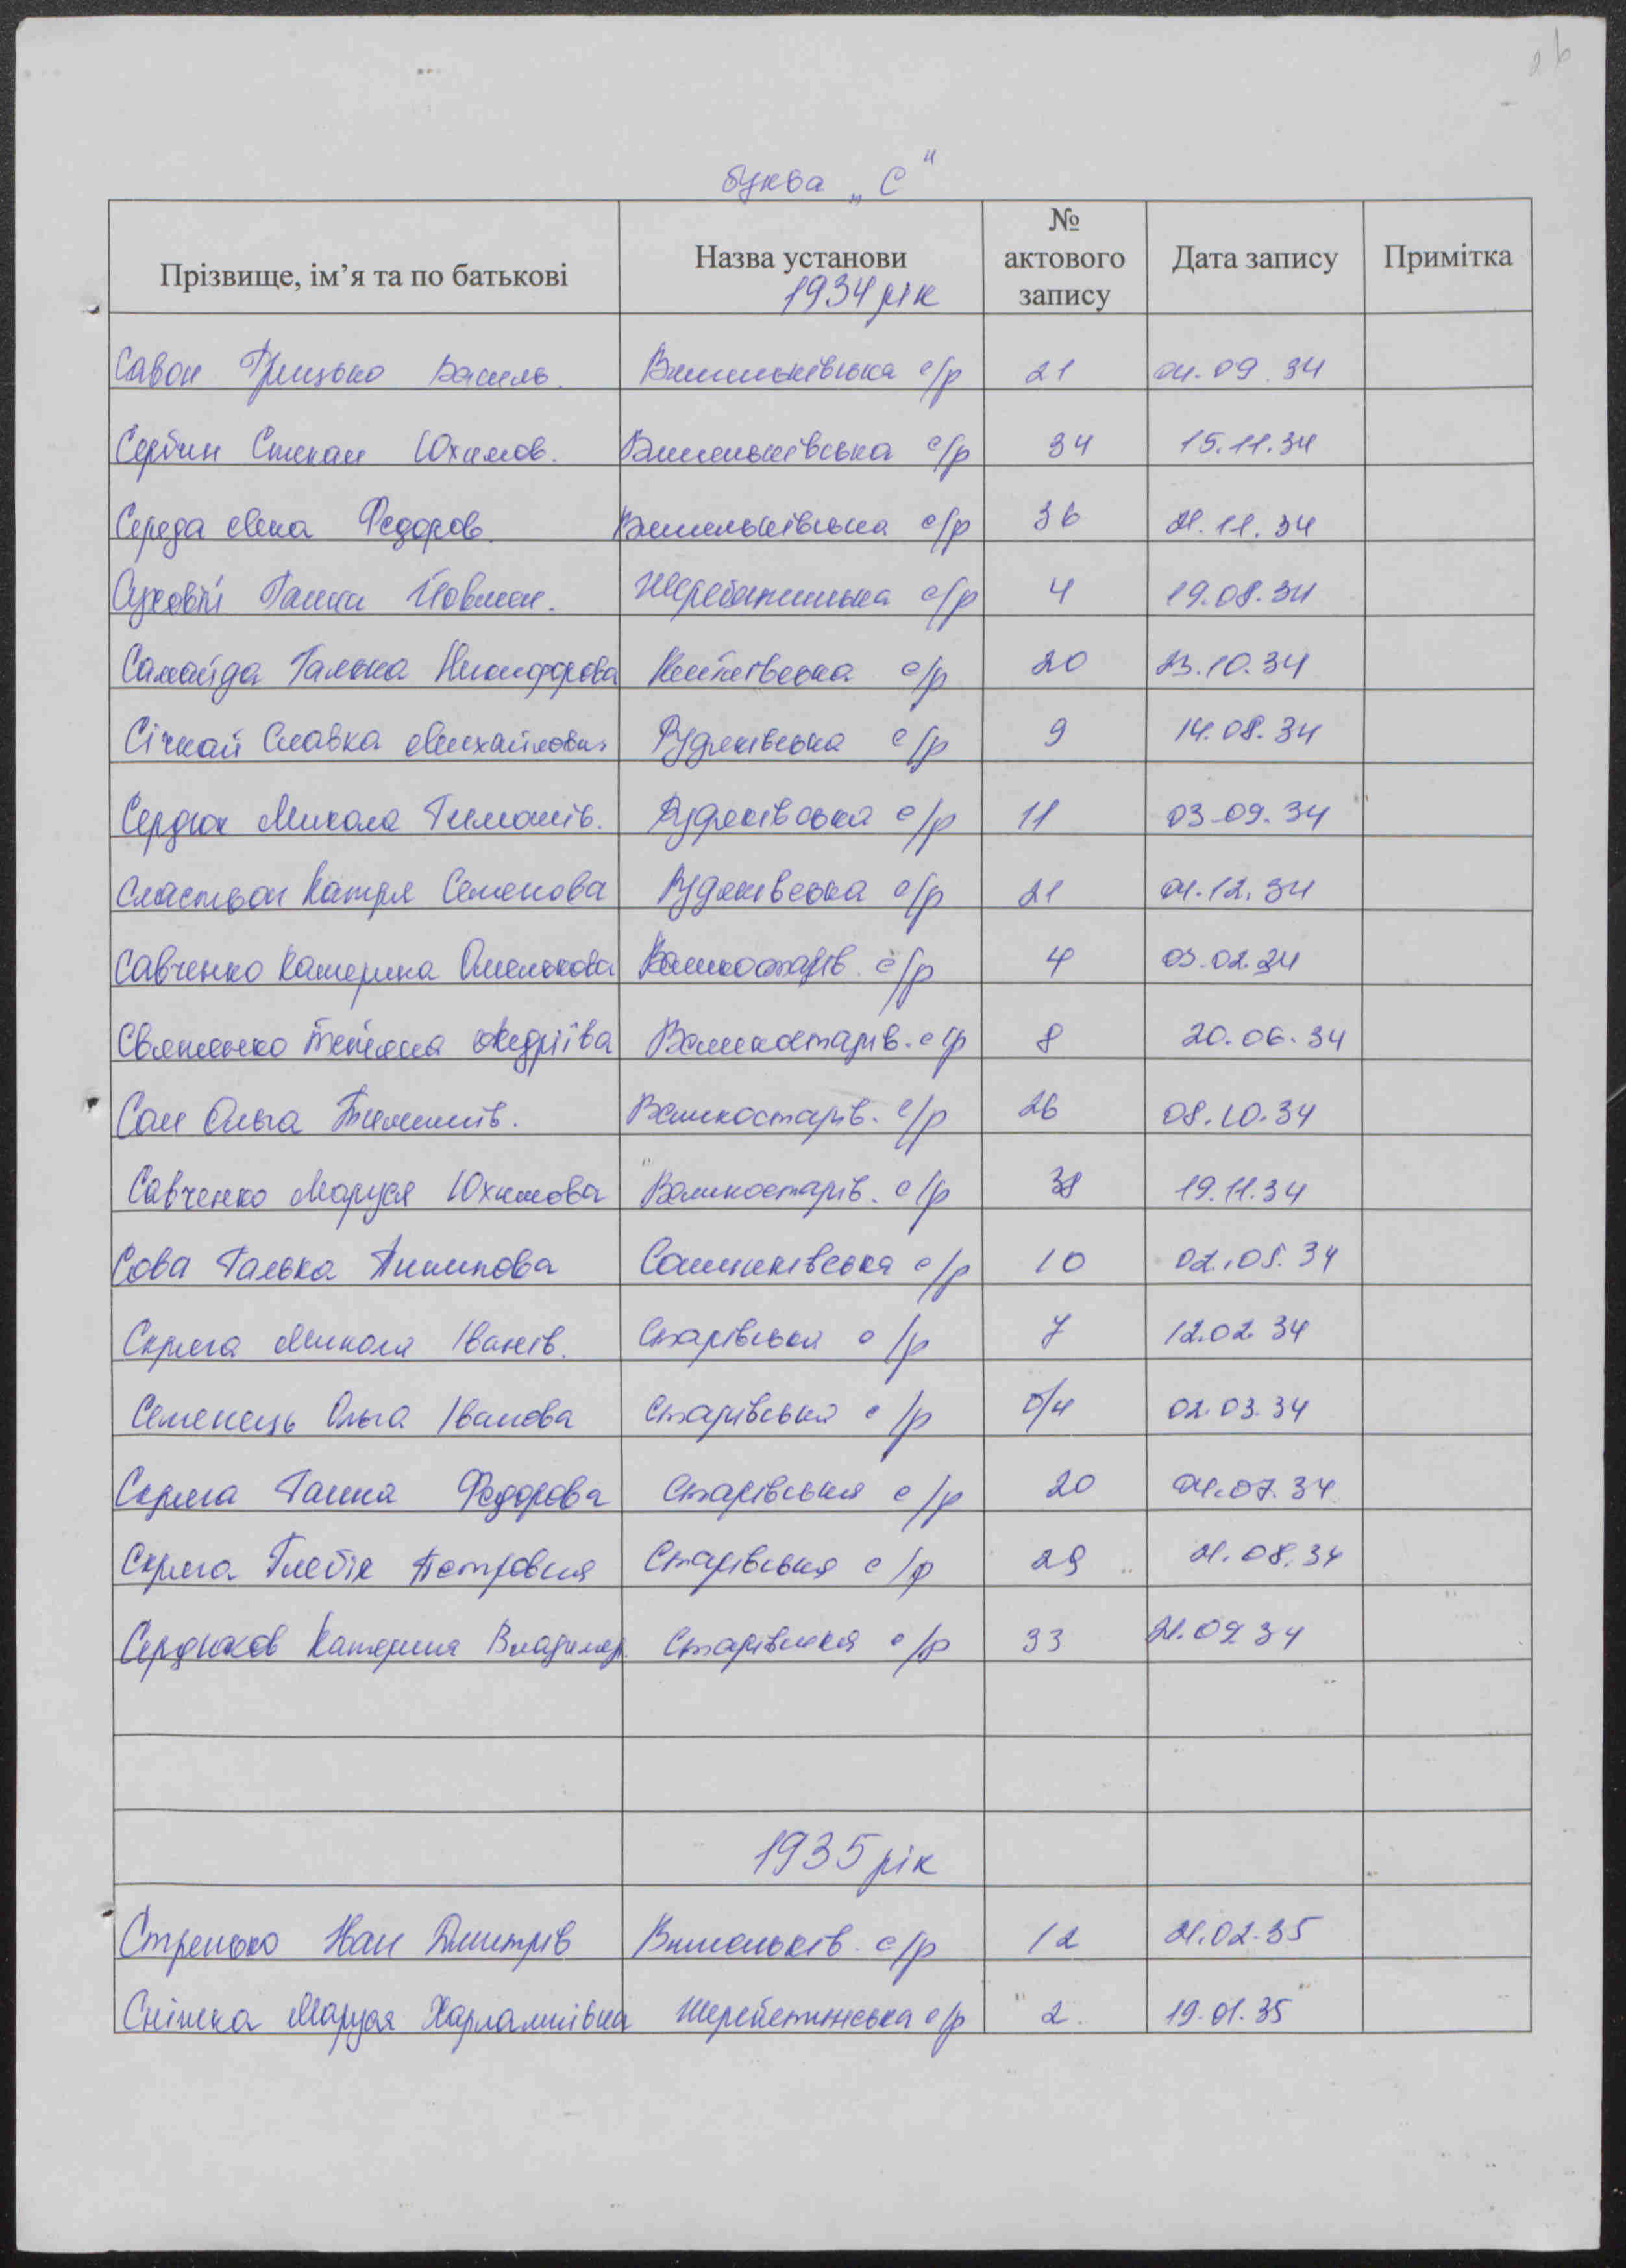 26
буква „С"
Прізвище, ім'я та по батькові Назва установи № актового запису Дата запису Примітка
1934 рік
Савон Грицько Василь. Вишеньківська с/р 21 04.09.34
Сербин Степан Юхимов. Вишеньківська с/р 34 15.11.34
Середа Федоров. Вишеньківська с/р 36 21.11.34
Суховій Ганна с/р 4 19.08.34
Самайда Галька Никифорова с/р 20 23.10.34
Січкай Славка Михайлович Рудяківська с/р 9 14.08.34
Сердюк Микола Тимошів. Рудяківська с/р 11 03.09.34
Сластьон Катря Семенова Рудяківська с/р 21 04.12.34
Савченко Катерина Омелькова Великостарів. с/р 4 03.02.24
Святенко Тетяна Андріїва Великостарів. с/р 8 20.06.34
Сом Ольга Великостарів. с/р 26 08.10.34
Савченко Маруся Юхимова Великостарів. с/р 38 19.11.34
Сова Галька Пилипова Сошниківська с/р 10 02.05.34
Скряга Микола Іванів. Старівська с/р 7 12.02.34
Семенець Ольга Іванова Старівська с/р б/н 02.03.34
Скряга Ганна Федорова Старівська с/р 20 04.07.34
Скряга Петровна Старівська с/р 29 21.08.34
Сердюков Катерина Владимир. Старівська с/р 33 21.09.34
1935 рік
Стренько Іван Дмитрів Вишеньків. с/р 12 21.02.35
Сніжка Маруся Харлампіївна с/р 2. 19.01.35